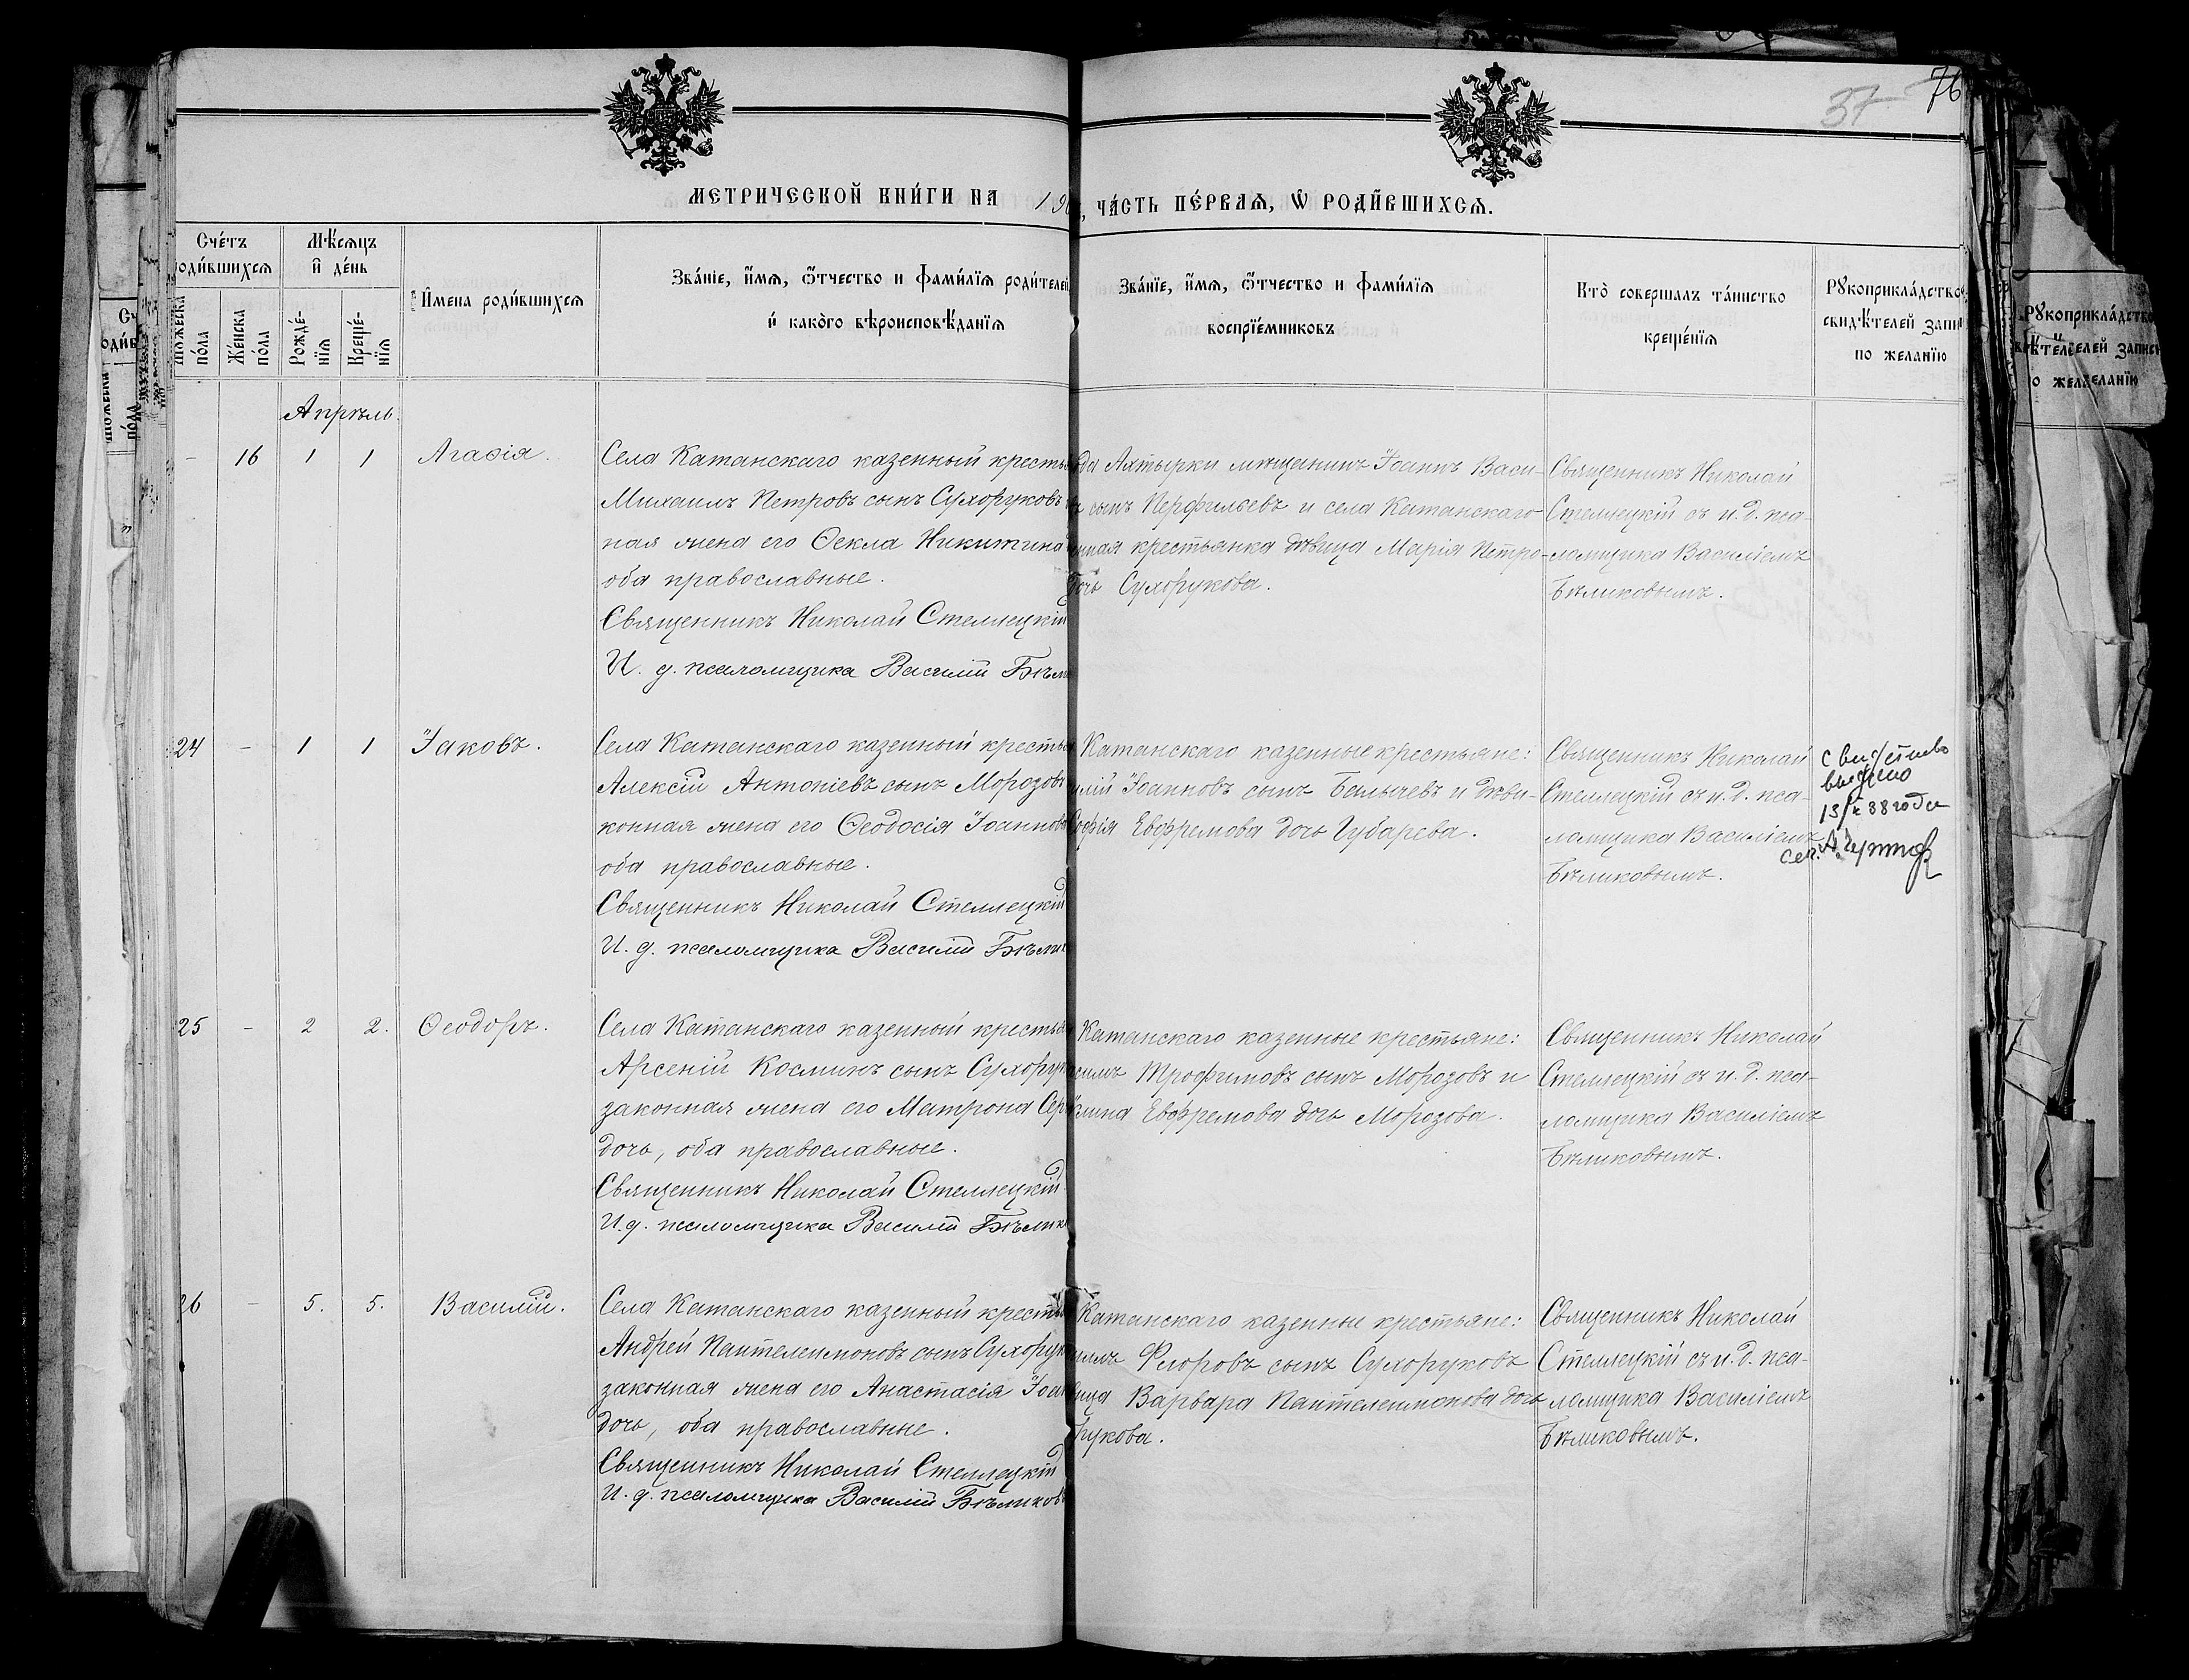 37 76
МЕТРИЧЕСКОЙ КНИ́ГИ НА 190 , ЧА́СТЬ ПЕ́РВАЯ, Ѡ РОДИ́ВШИХСЯ.
Сче́тъ
роди́вшихся
Му́жеска
по́ла
Же́нска
по́ла
Мѣ́сяцъ
и҆ де́нь
Рожде́-
нїя
Креще́-
нїя
И҆мена роди́вшихся
Зва́нїе, и҆́мя, ѻ҆́тчество и фами́лїя роди́телей
и҆ како́го вѣроисповѣ́данїя
Зва́нїе, и҆́мя, ѻ҆́тчество и фами́лїя
воспрїе́мниковъ
Кто̀ соверша́лъ та́инство
креще́нїя
Рꙋкоприкла́дство
свидѣ́телей запи
по жела́нїю
Апрѣль.
- 16 1 1 Агаѳія.
Села Катанскаго казенный кресть
Михаилъ Петровъ сынъ Сухоруковъ
ная жена его Ѳекла Никитина
оба православные.
Священникъ Николай Стеллецкій
И. д. псаломщика Василій Бѣли
да Ахтырки мѣщанинъ Іоаннъ Васи-
въ сынъ Перфильевъ и села Катанскаго
нная крестьянка дѣвица Марія Петро-
дочь Сухорукова.
Священникъ Николай
Стеллецкій съ и. д. пса-
ломщика Василіемъ
Бѣликовымъ.
24 - 1 1 Іаковъ.
Села Катанскаго казенный кресть
Алексій Антоніевъ сынъ Морозовъ
конная жена его Ѳеодосія Іоаннова
оба православные.
Священникъ Николай Стеллецкій
И. д. псаломщика Василій Бѣли
Катанскаго казенные крестьяне:
илій Іоанновъ сынъ Балычевъ и дѣви-
Софія Евфремова дочь Губарева.
Священникъ Николай
Стеллецкій съ и. д. пса-
ломщика Василіемъ
Бѣликовымъ.
выдано
88 года
25 - 2 2. Ѳеодоръ.
Села Катанскаго казенный крестья
Арсеній Косминъ сынъ Сухорук
законная жена его Матрона Сер
дочь, оба православные.
Священникъ Николай Стеллецкій
И. д. псаломщика Василій Бѣлик
Катанскаго казенные крестьяне:
симъ Трофимовъ сынъ Морозовъ и
Евфремова дочь Морозова.
Священникъ Николай
Стеллецкій съ и. д. пса-
ломщика Василіемъ
Бѣликовымъ.
26 - 5. 5. Василій.
Села Катанскаго казенный кресть
Андрей Пантелеимоновъ сынъ Сухорук
законная жена его Анастасія Іоан
дочь, оба православные.
Священникъ Николай Стеллецкій
И. д. псаломщика Василій Бѣликовъ
Катанскаго казенные крестьяне:
илъ Флоровъ сынъ Сухоруковъ
вица Варвара Пантелеимонова дочь
рукова.
Священникъ Николай
Стеллецкій съ и. д. пса-
ломщика Василіемъ
Бѣликовымъ.